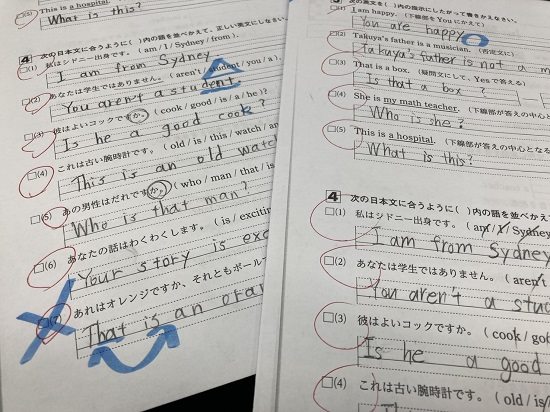 (5) This is a hospital.
What is this?
4 次の日本文に合うように( )内の語を並べかえて、正しい英文にしなさい。
(1) 私はシドニー出身です。( am / I / Sydney / from ).
I am from Sydney
(2) あなたは学生ではありません。( aren't / student / you / a ).
You aren't a student.
(3) 彼はよいコックですか。( cook / good / is / a / he )?
Is he a good cook?
(4) これは古い腕時計です。( old / is / this / watch / an
This is an old watch
(5) あの男性はだれですか。( who / man / that / is
Who is that man?
(6) あなたの話はわくわくします。( is /
Your story is
(7) あれはオレンジですか、それともボール
That is an
(1) I am happy. (下線部を You にかえて)
You are happy.
(2) Takuya's father is a musician. (否定文に)
Takuya's father is not a
(3) That is a box. (疑問文にして、Yes で答える)
Is that a box?
(4) She is my math teacher. (下線部が答えの中心と
Who is she?
(5) This is a hospital. (下線部が答えの中心となる
What is this?
4 次の日本文に合うように( )内の語を並べか
(1) 私はシドニー出身です。( am / I / Sydney
I am from Sydney
(2) あなたは学生ではありません。( aren't
You aren't a
(3) 彼はよいコックですか。( cook /
Is he a good
(4) これは古い腕時計です。( old / is